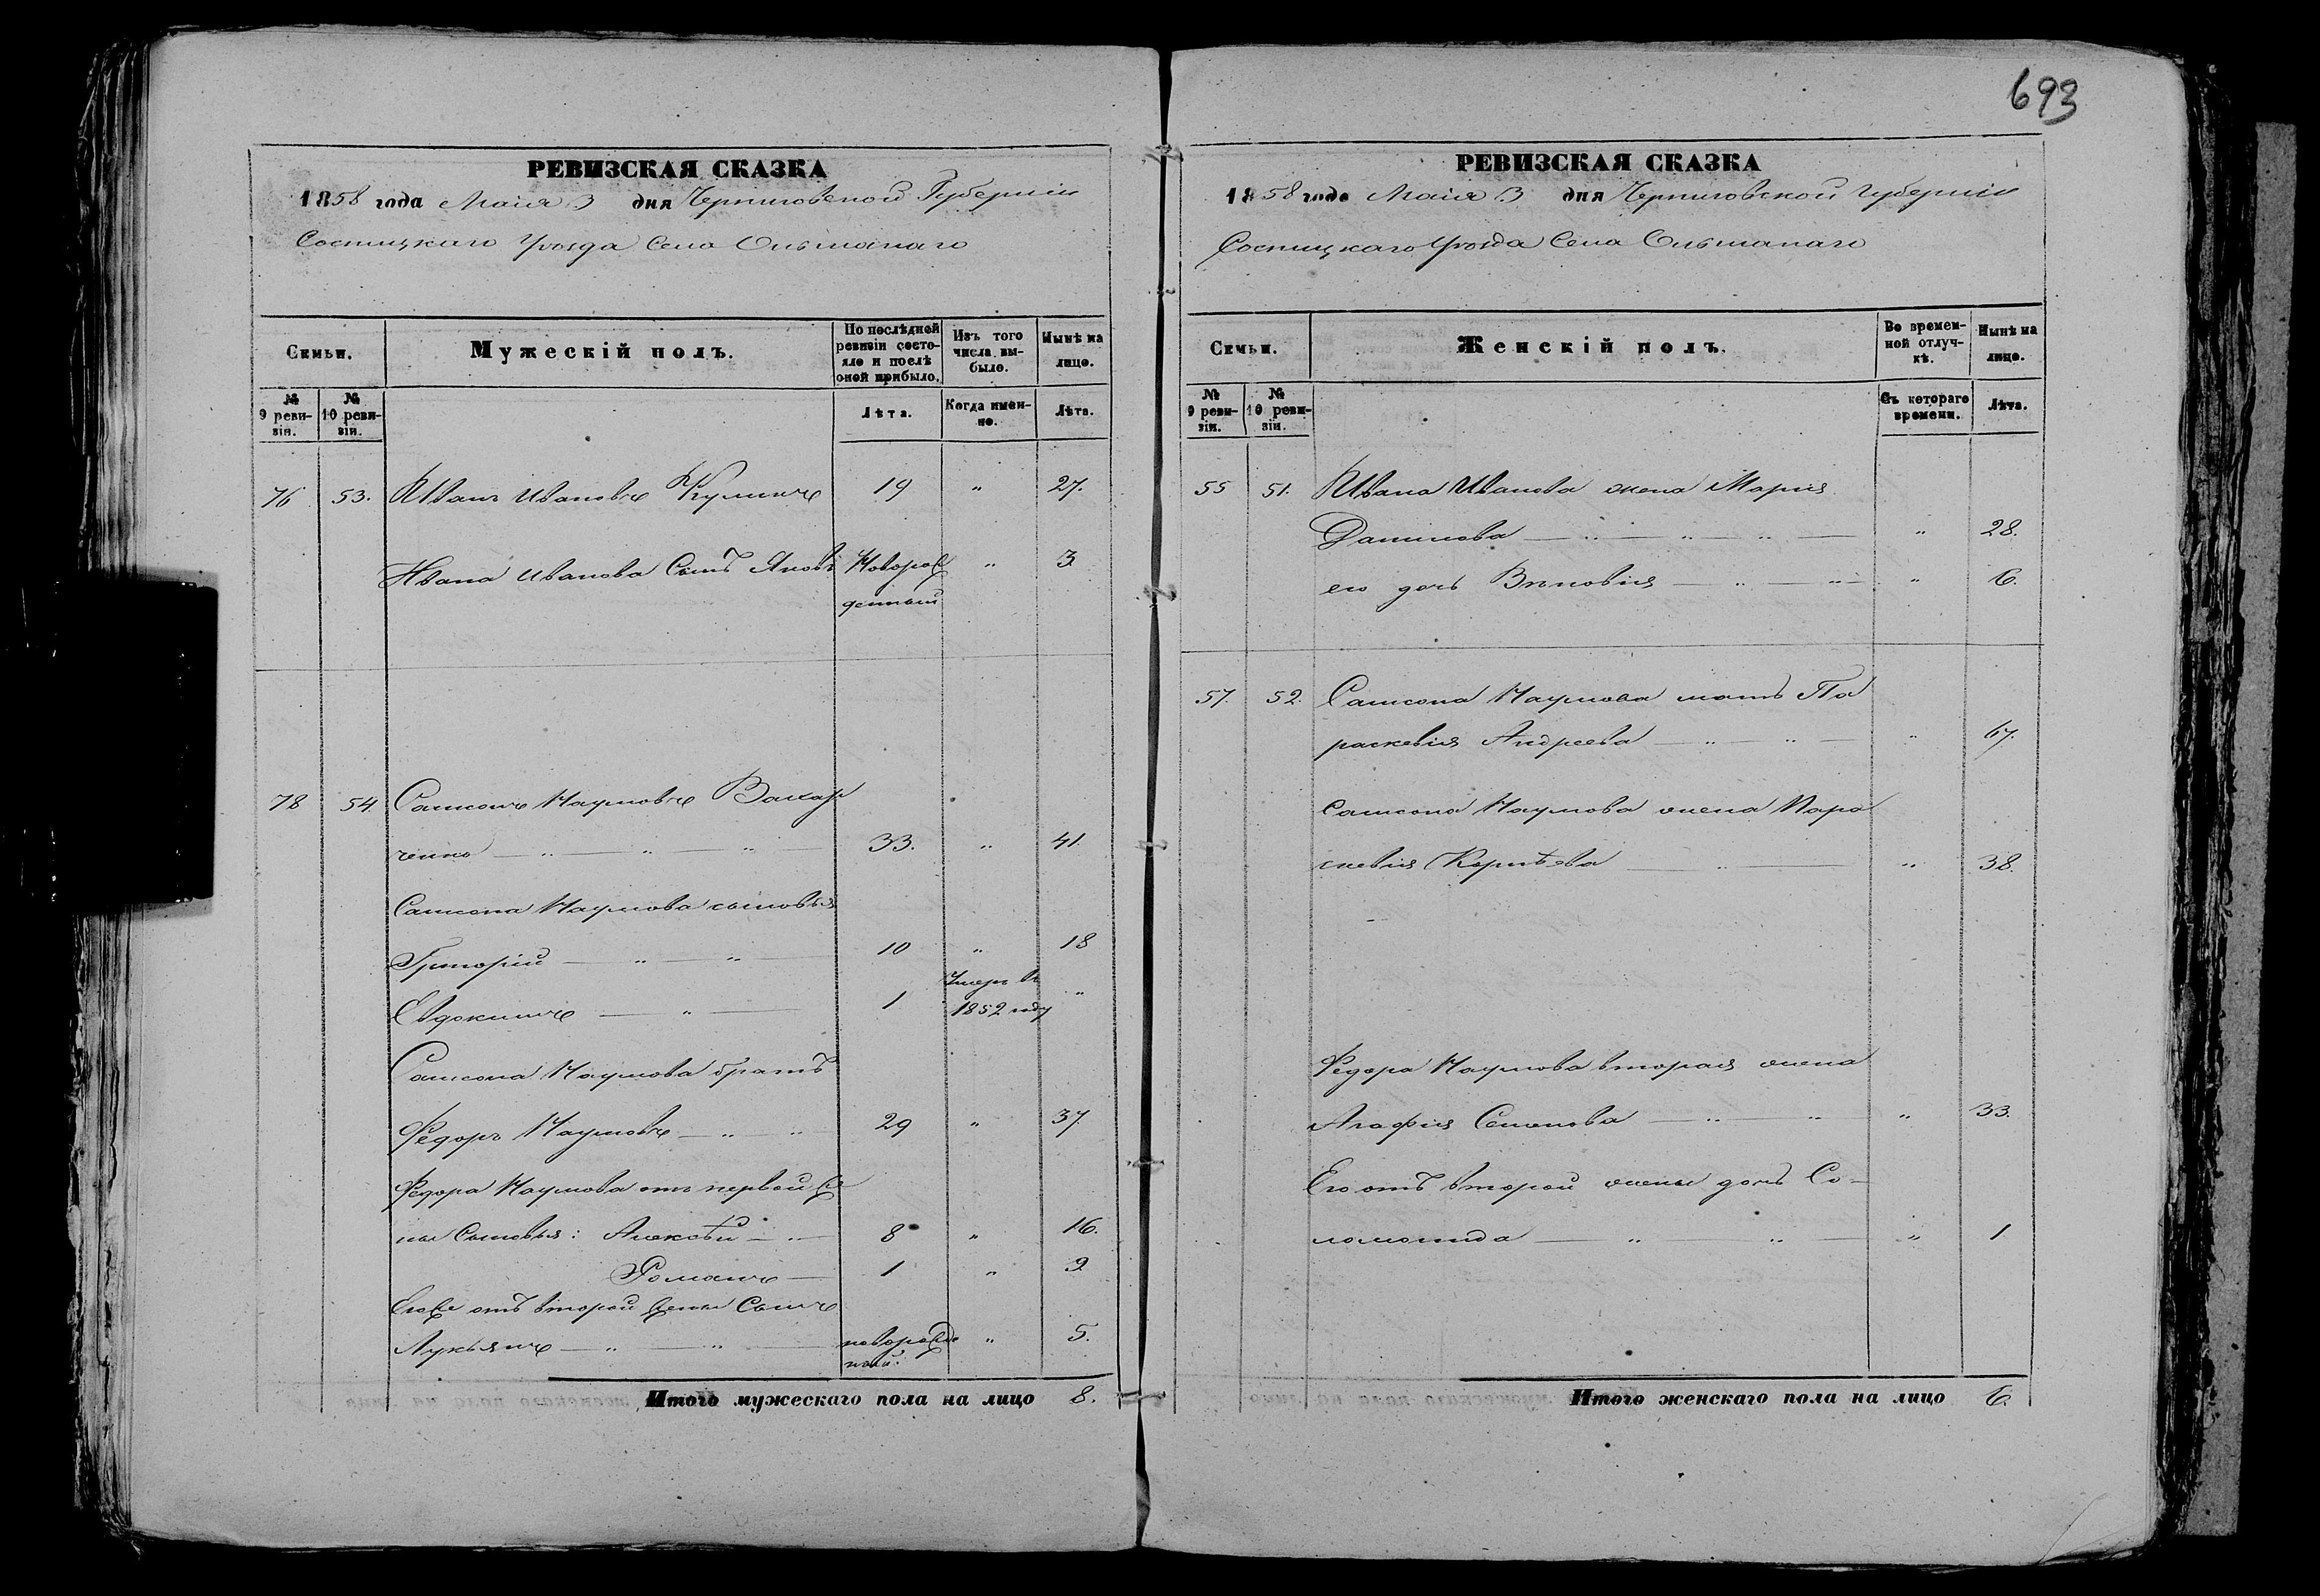 693
РЕВИЗСКАЯ СКАЗКА
1858 года Маія 3 дня Черниговской Губерніи
Сосницкаго Уѣзда Села Ольшанаго
Семьи.
Мужескій полъ.
По послѣдней ревизіи состояло и послѣ оной прибыло.
Изъ того числа выбыло.
Нынѣ на лицо.
№ 9 ревизіи.
№ 10 ревизіи.
Лѣта.
Когда именно.
Лѣта.
76 53. Иванъ Ивановъ Кулишъ 19 " 27.
Ивана Иванова Сынъ Яковъ Новорож " 3
денный
78 54. Самсонъ Наумовъ Захар
ченко — " — " — " — 33. " 41.
Самсона Наумова сыновья
Григорій — " — " — 10 " 18
Умеръ въ
Евдокимъ — " — 1 1852 году "
Самсона Наумова братъ
Федоръ Наумовъ — " — " 29 " 37.
Федора Наумова отъ первой же
ны Сыновья: Алексѣй — " — 8 " 16.
Романъ — 1 " 9
Егоже отъ второй жены Сынъ
Лукьянъ — " — " — новорожде " 5.
ный.
Итого мужескаго пола на лицо 8.
РЕВИЗСКАЯ СКАЗКА
1858 года Маія 3 дня Черниговской Губерніи
Сосницкаго Уѣзда Села Ольшанаго
Семьи.
Женскій полъ.
Во временной отлучкѣ.
Нынѣ на лицо.
№ 9 ревизіи.
№ 10 ревизіи.
Съ котораго времени.
Лѣта.
55 51. Ивана Иванова жена Марія
Данилова — " — " — " — " 28.
его дочь Зѣновія — " — " — " 6.
57. 52. Самсона Наумова мать Па
раскевія Андреева — " — " — " 67.
Самсона Наумова жена Пара
скевія Корнѣева — " — " 38.
Федора Наумова вторая жена
Агафія Семенова — " — " — " 33.
Его отъ второй жены дочь Со-
ломонида — " — " — " 1
Итого женскаго пола на лицо 6.